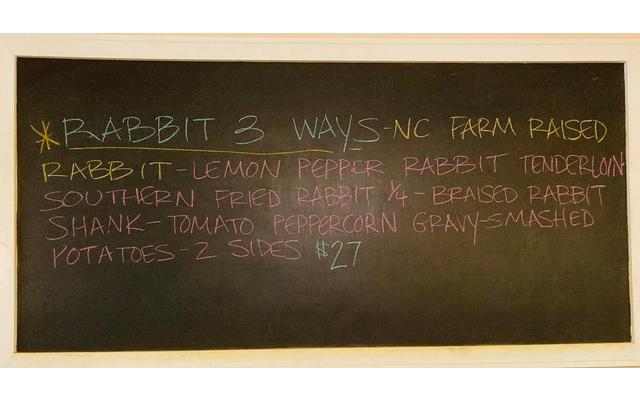 *RABBIT 3 WAYS-NC FARM RAISED
RABBIT-LEMON PEPPER RABBIT TENDERLOIN
SOUTHERN FRIED RABBIT 1/4-BRAISED RABBIT
SHANK-TOMATO PEPPERCORN GRAVY-SMASHED
POTATOES-2 SIDES $27